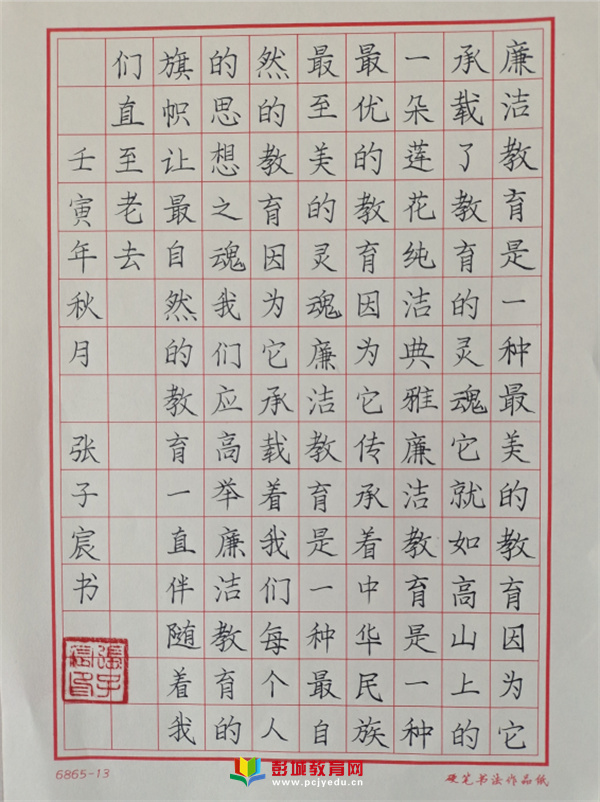 廉洁教育是一种最美的教育因为它
承载了教育的灵魂它就如高山上的
一朵莲花纯洁典雅廉洁教育是一种
最优的教育因为它传承着中华民族
最至美的灵魂廉洁教育是一种最自
然的教育因为它承载着我们每个人
的思想之魂我们应高举廉洁教育的
旗帜让最自然的教育一直伴随着我
们直至老去
壬寅年秋月 张子宸书
6865-13
硬笔书法作品纸
彭城教育网
www.pcjyedu.cn